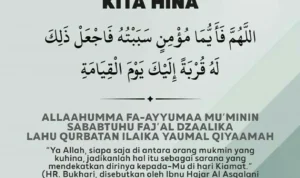 KITA HINA
اللَّهُمَّ فَأَيُّمَا مُؤْمِنٍ سَبَبْتُهُ فَاجْعَلْ ذَلِكَ
لَهُ قُرْبَةً إِلَيْكَ يَوْمَ الْقِيَامَةِ
ALLAAHUMMA FA-AYYUMAA MU'MININ
SABABTUHU FAJ'AL DZAALIKA
LAHU QURBATAN ILAIKA YAUMAL QIYAAMAH
"Ya Allah, siapa saja di antara orang mukmin yang
kuhina, jadikanlah hal itu sebagai sarana yang
mendekatkan dirinya kepada-Mu di hari Kiamat."
(HR. Bukhari, disebutkan oleh Ibnu Hajar Al Asqalani